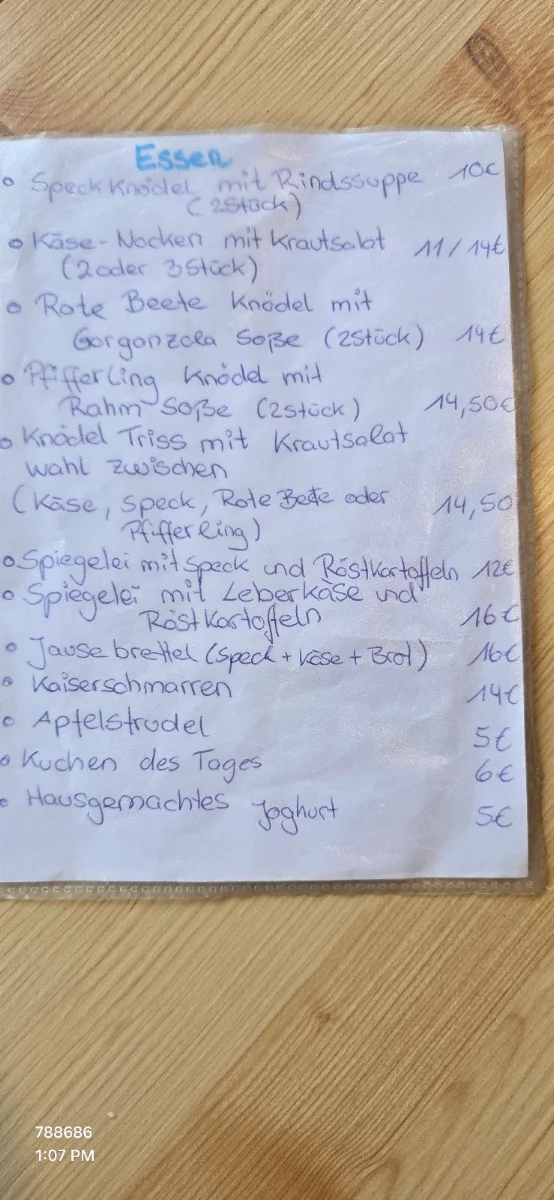 Essen
• Speck Knödel mit Rindssuppe 10€
(2Stück)
• Käse-Nocken mit Krautsalat 11/14€
(2 oder 3 Stück)
• Rote Beete Knödel mit
Gorgonzola Soße (2Stück) 14€
• Pfifferling Knödel mit
Rahm Soße (2Stück) 14,50€
• Knödel Triss mit Krautsalat
wahl zwischen
(Käse, Speck, Rote Beete oder 14,50
Pfifferling)
• Spiegelei mit Speck und Röstkartoffeln 12€
• Spiegelei mit Leberkäse und
Röstkartoffeln 16€
• Jause brettel (Speck + Käse + Brot) 16€
• Kaiserschmarren 14€
• Apfelstrudel 5€
• Kuchen des Tages 6€
• Hausgemachtes Joghurt 5€
788686
1:07 PM